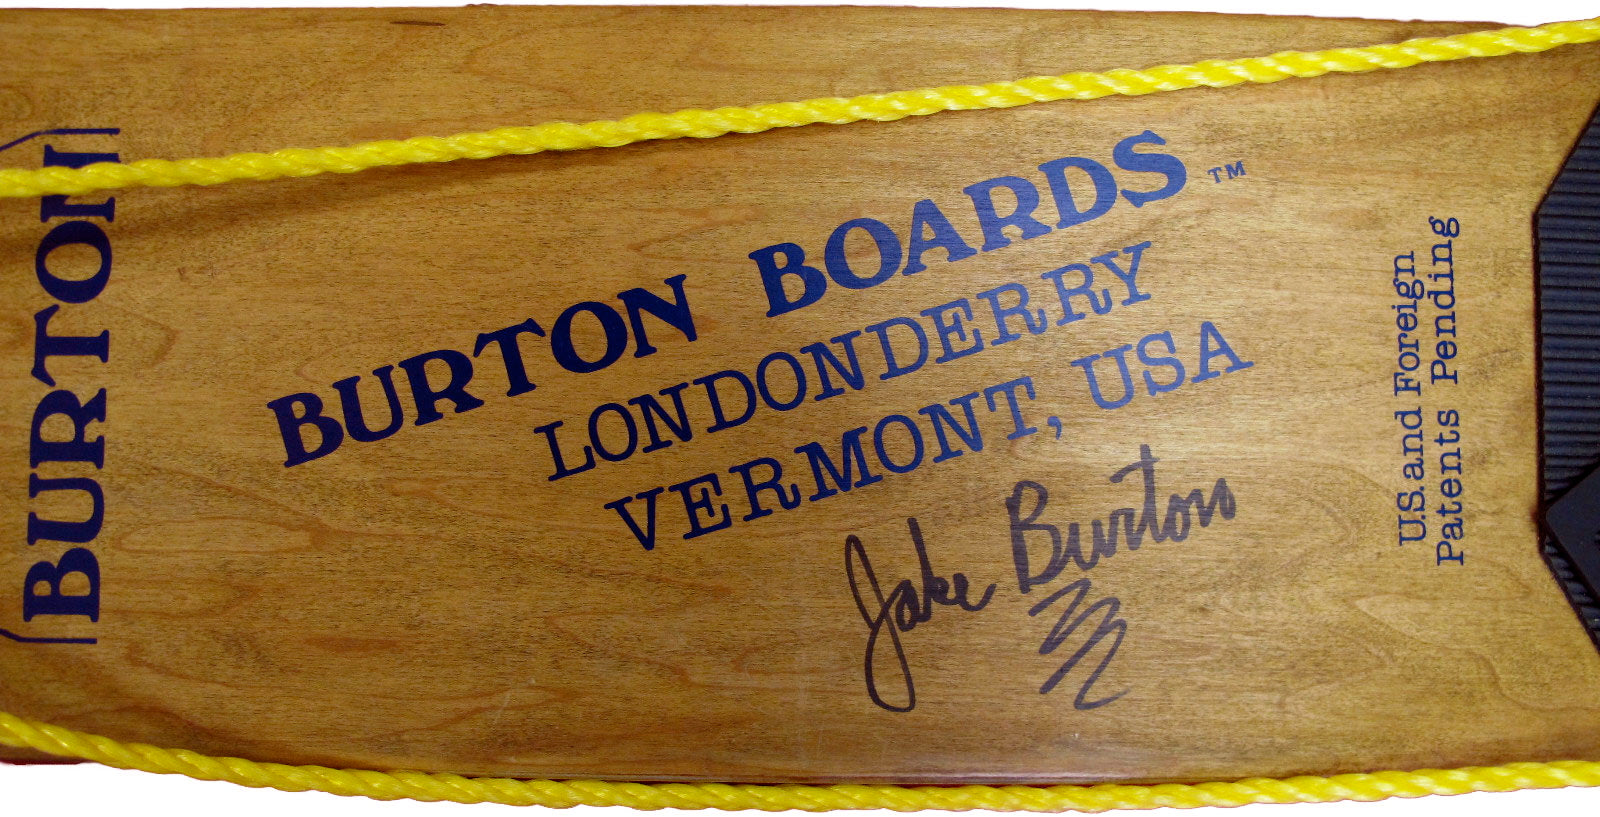 BURTON
BURTON BOARDS™
LONDONDERRY
VERMONT, USA
Jake Burton
U.S. and Foreign
Patents Pending